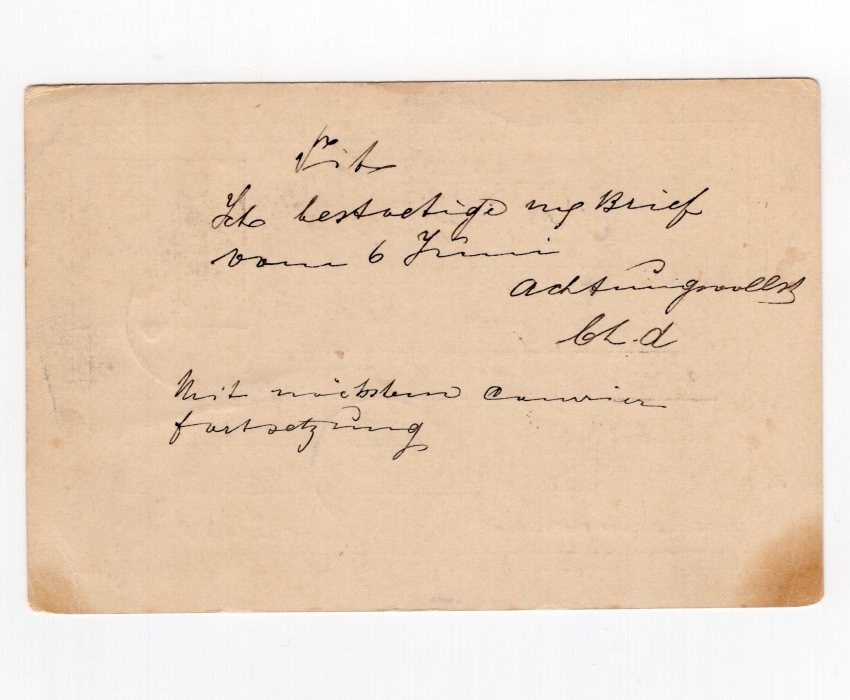 Ich bestaetige mg Brief
vom 6 Juni
Achtungsvollst
Mit nächstem Courrier
fortsetzung